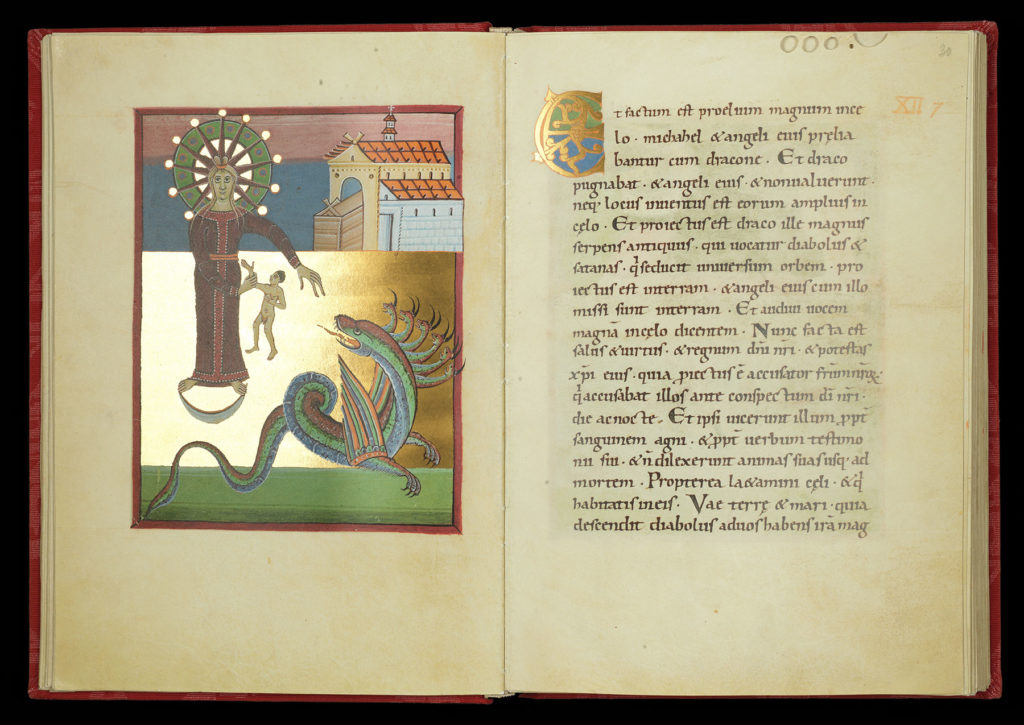 30
XII 7
Et factum est proelium magnum ince
lo · michahel & angeli eius pręlia
bantur cum dracone · Et draco
pugnabat · & angeli eius · & nonualuerunt ·
neq; locus inuentus est eorum amplius in
cęlo · Et proiectus est draco ille magnus
serpens antiquus · qui uocatur diabolus &
satanas · q̇ seducit uniuersum orbem · pro
iectus est interram · & angeli eius cum illo
missi sunt interram · Et audiui uocem
magnā incęlo dicentem · Nunc facta est
salus & uirtus · & regnum dn̄i nr̄i · & potestas
xp̄i eius · quia ꝓiectus ē accusator
q̇ accusabat illos ante conspectum dī nr̄i ·
die ac nocte · Et ipsi uicerunt illum ꝓpt̄
sanguinem agni · & ꝓpt̄ uerbum testimo
nii sui · & n̄ dilexerunt animas suas usq; ad
mortem · Propterea la&amini cęli · & q̇
habitatis ineis · Vae terrę & mari · quia
descendit diabolus aduos habens irā mag